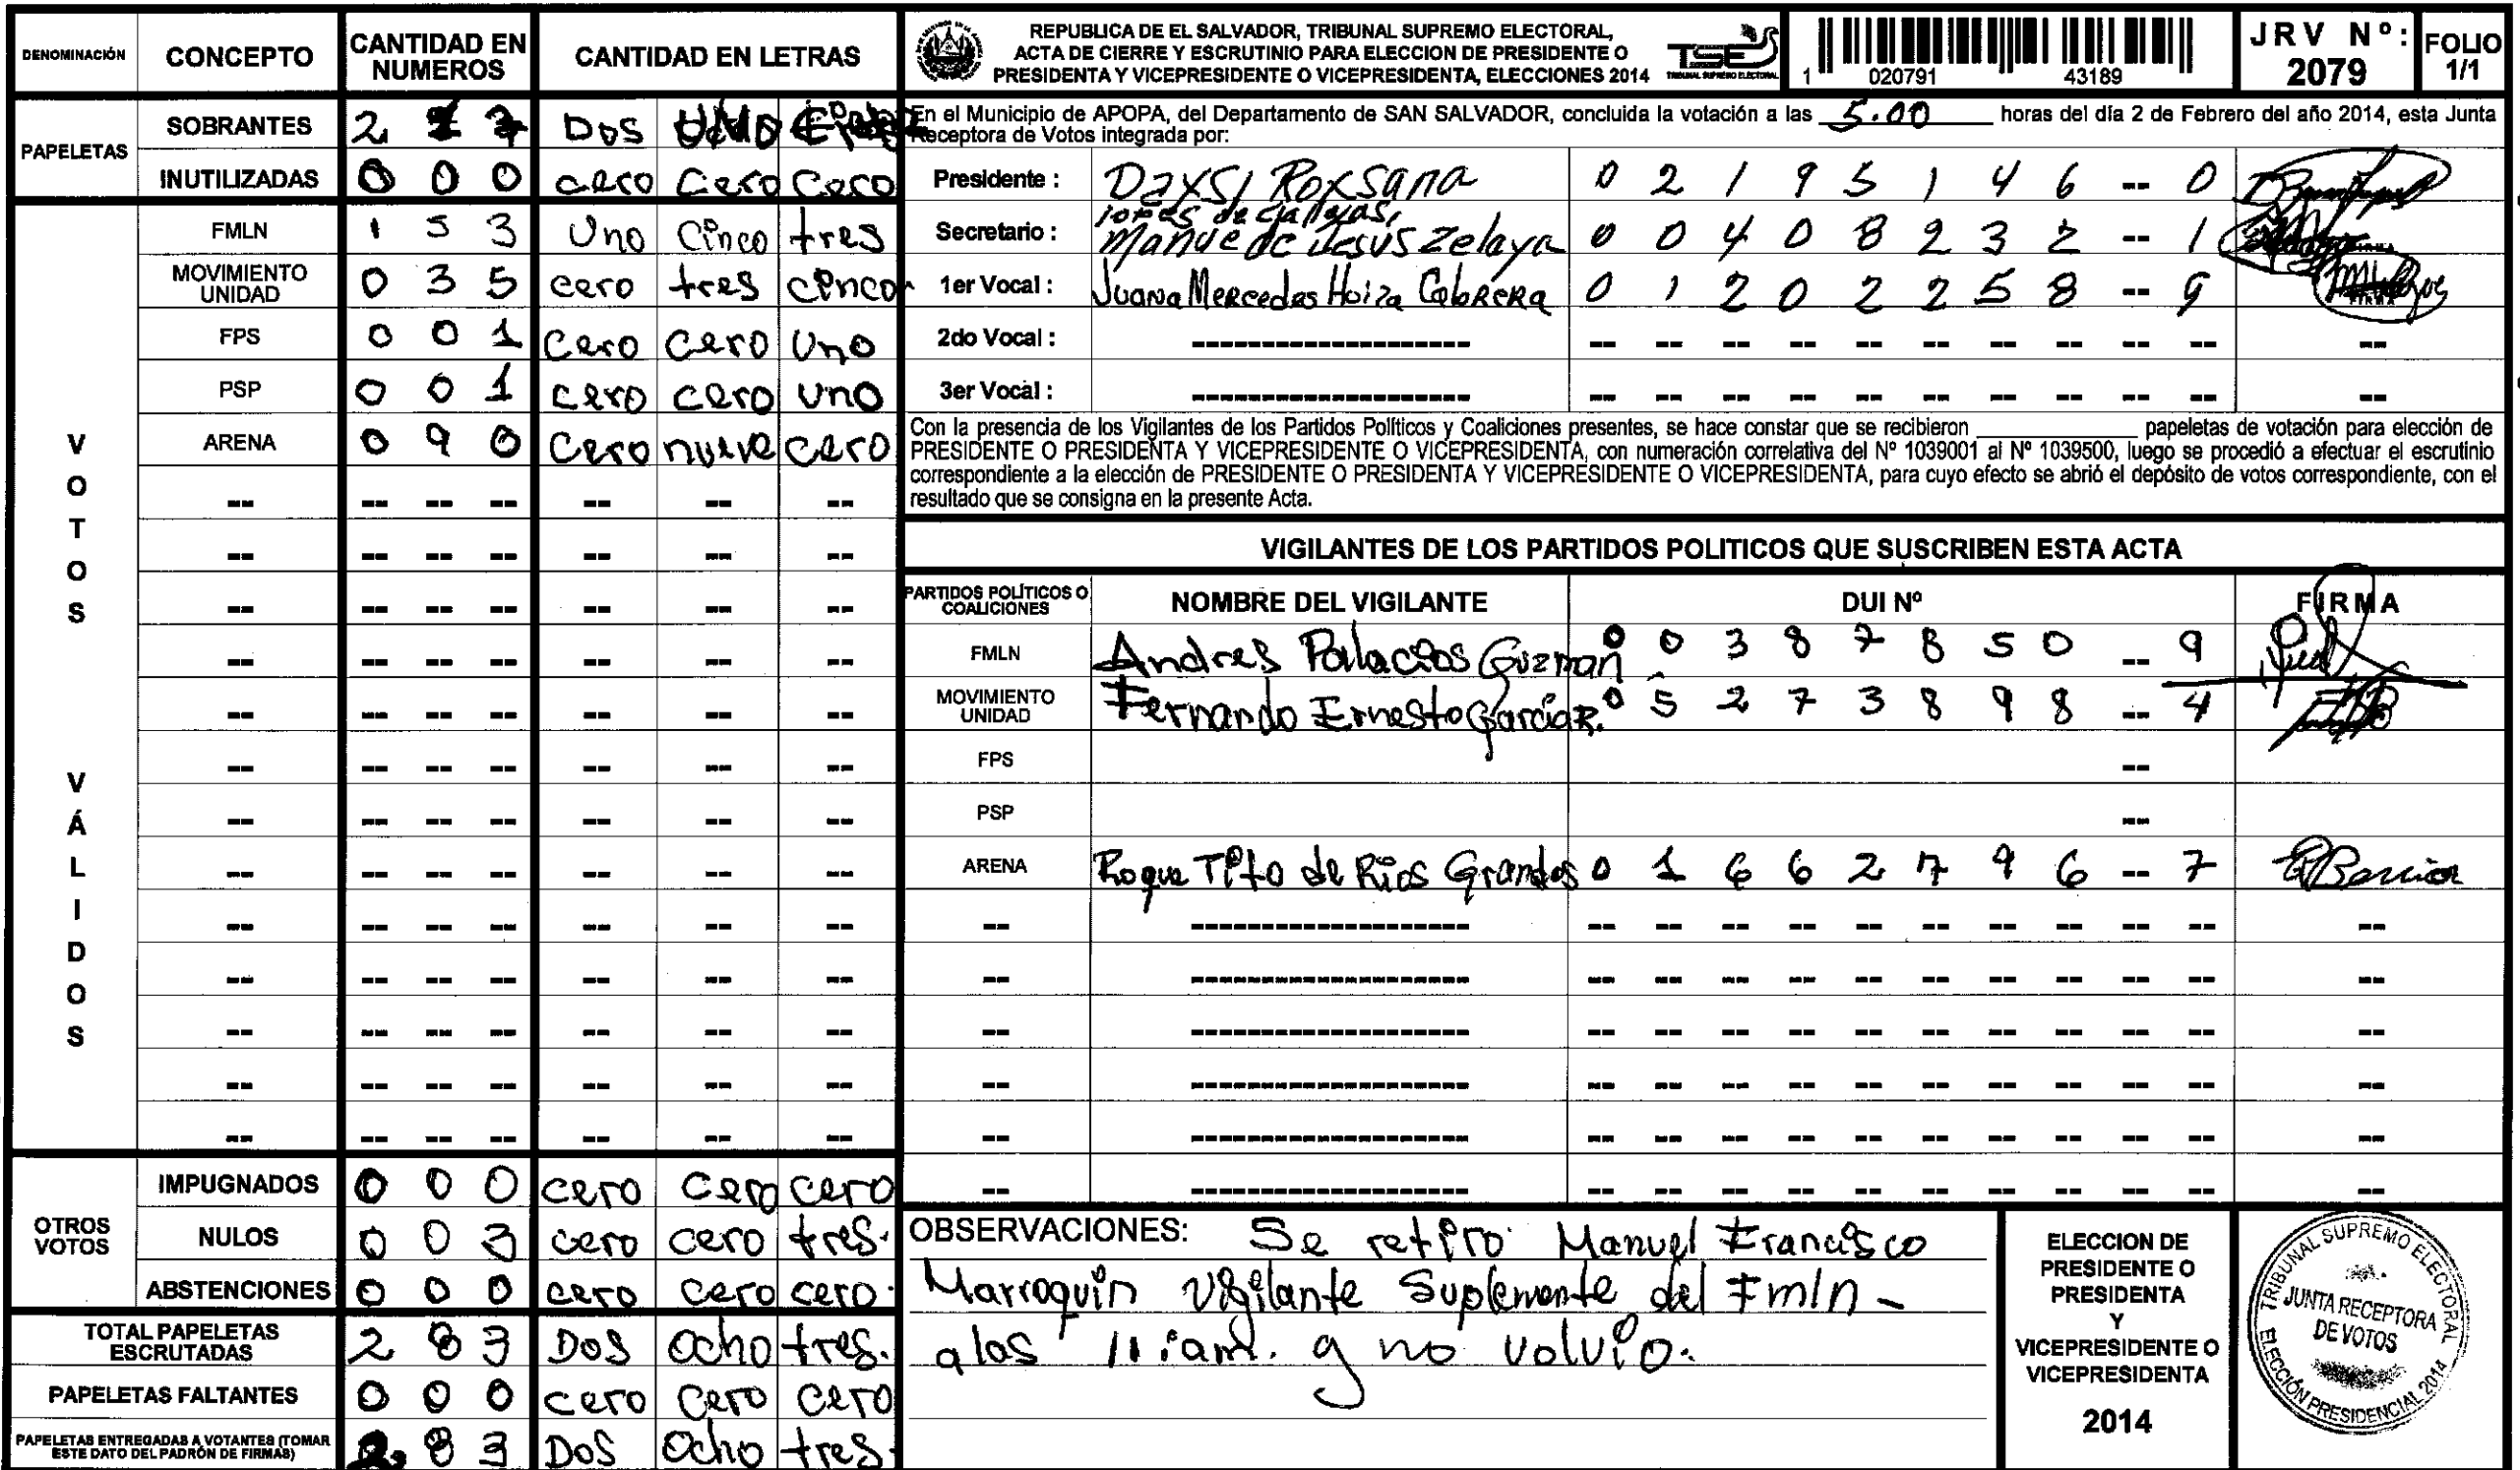 DENOMINACIÓN CONCEPTO CANTIDAD EN NUMEROS CANTIDAD EN LETRAS
PAPELETAS
SOBRANTES 2 Dos
INUTILIZADAS 0 0 0 cero Cero Cero
VOTOS VÁLIDOS
FMLN 1 5 3 Uno Cinco tres
MOVIMIENTO UNIDAD 0 3 5 cero tres cinco
FPS 0 0 1 Cero Cero Uno
PSP 0 0 1 cero cero uno
ARENA 0 9 0 Cero nueve cero
-- -- -- -- -- -- --
-- -- -- -- -- -- --
-- -- -- -- -- -- --
-- -- -- -- -- -- --
-- -- -- -- -- -- --
-- -- -- -- -- -- --
-- -- -- -- -- -- --
-- -- -- -- -- -- --
-- -- -- -- -- -- --
-- -- -- -- -- -- --
-- -- -- -- -- -- --
-- -- -- -- -- -- --
-- -- -- -- -- -- --
OTROS VOTOS
IMPUGNADOS 0 0 0 cero Cero cero
NULOS 0 0 3 cero cero tres.
ABSTENCIONES 0 0 0 cero cero cero.
TOTAL PAPELETAS ESCRUTADAS 2 8 3 Dos Ocho tres.
PAPELETAS FALTANTES 0 0 0 cero Cero cero
PAPELETAS ENTREGADAS A VOTANTES (TOMAR ESTE DATO DEL PADRÓN DE FIRMAS) 2 8 3 Dos Ocho tres.
REPUBLICA DE EL SALVADOR, TRIBUNAL SUPREMO ELECTORAL,
ACTA DE CIERRE Y ESCRUTINIO PARA ELECCION DE PRESIDENTE O
PRESIDENTA Y VICEPRESIDENTE O VICEPRESIDENTA, ELECCIONES 2014
TSE
TRIBUNAL SUPREMO ELECTORAL
1 020791 43189
JRV Nº: 2079
FOLIO 1/1
En el Municipio de APOPA, del Departamento de SAN SALVADOR, concluida la votación a las 5.00 horas del día 2 de Febrero del año 2014, esta Junta
Receptora de Votos integrada por:
Presidente : Daysi Roxsana 0 2 1 9 5 1 4 6 -- 0
Secretario : Manue de Jesús Zelaya 0 0 4 0 8 2 3 2 -- 1
1er Vocal : Juana Mercedes Cabrera 0 1 2 0 2 2 5 8 -- 9
2do Vocal : ------------------ -- -- -- -- -- -- -- -- -- -- --
3er Vocal : ------------------ -- -- -- -- -- -- -- -- -- -- --
Con la presencia de los Vigilantes de los Partidos Políticos y Coaliciones presentes, se hace constar que se recibieron ____________ papeletas de votación para elección de
PRESIDENTE O PRESIDENTA Y VICEPRESIDENTE O VICEPRESIDENTA, con numeración correlativa del Nº 1039001 al Nº 1039500, luego se procedió a efectuar el escrutinio
correspondiente a la elección de PRESIDENTE O PRESIDENTA Y VICEPRESIDENTE O VICEPRESIDENTA, para cuyo efecto se abrió el depósito de votos correspondiente, con el
resultado que se consigna en la presente Acta.
VIGILANTES DE LOS PARTIDOS POLITICOS QUE SUSCRIBEN ESTA ACTA
PARTIDOS POLÍTICOS O COALICIONES NOMBRE DEL VIGILANTE DUI Nº FIRMA
FMLN Andres Palacios Guzman 0 0 3 8 7 8 5 0 -- 9
MOVIMIENTO UNIDAD Fernando Ernesto García R. 0 5 2 7 3 8 9 8 -- 4
FPS --
PSP --
ARENA Roque Tito de Rios Grandes 0 1 6 6 2 7 9 6 -- 7
-- ------------------ -- -- -- -- -- -- -- -- -- -- --
-- ------------------ -- -- -- -- -- -- -- -- -- -- --
-- ------------------ -- -- -- -- -- -- -- -- -- -- --
-- ------------------ -- -- -- -- -- -- -- -- -- -- --
-- ------------------ -- -- -- -- -- -- -- -- -- -- --
-- ------------------ -- -- -- -- -- -- -- -- -- -- --
OBSERVACIONES: Se retiro Manuel Francisco
Marroquin Vigilante Suplemente del Fmln -
a las 11:am. y no volvio.
ELECCION DE
PRESIDENTE O
PRESIDENTA
Y
VICEPRESIDENTE O
VICEPRESIDENTA
2014
TRIBUNAL SUPREMO ELECTORAL
JUNTA RECEPTORA
DE VOTOS
ELECCIÓN PRESIDENCIAL 2014